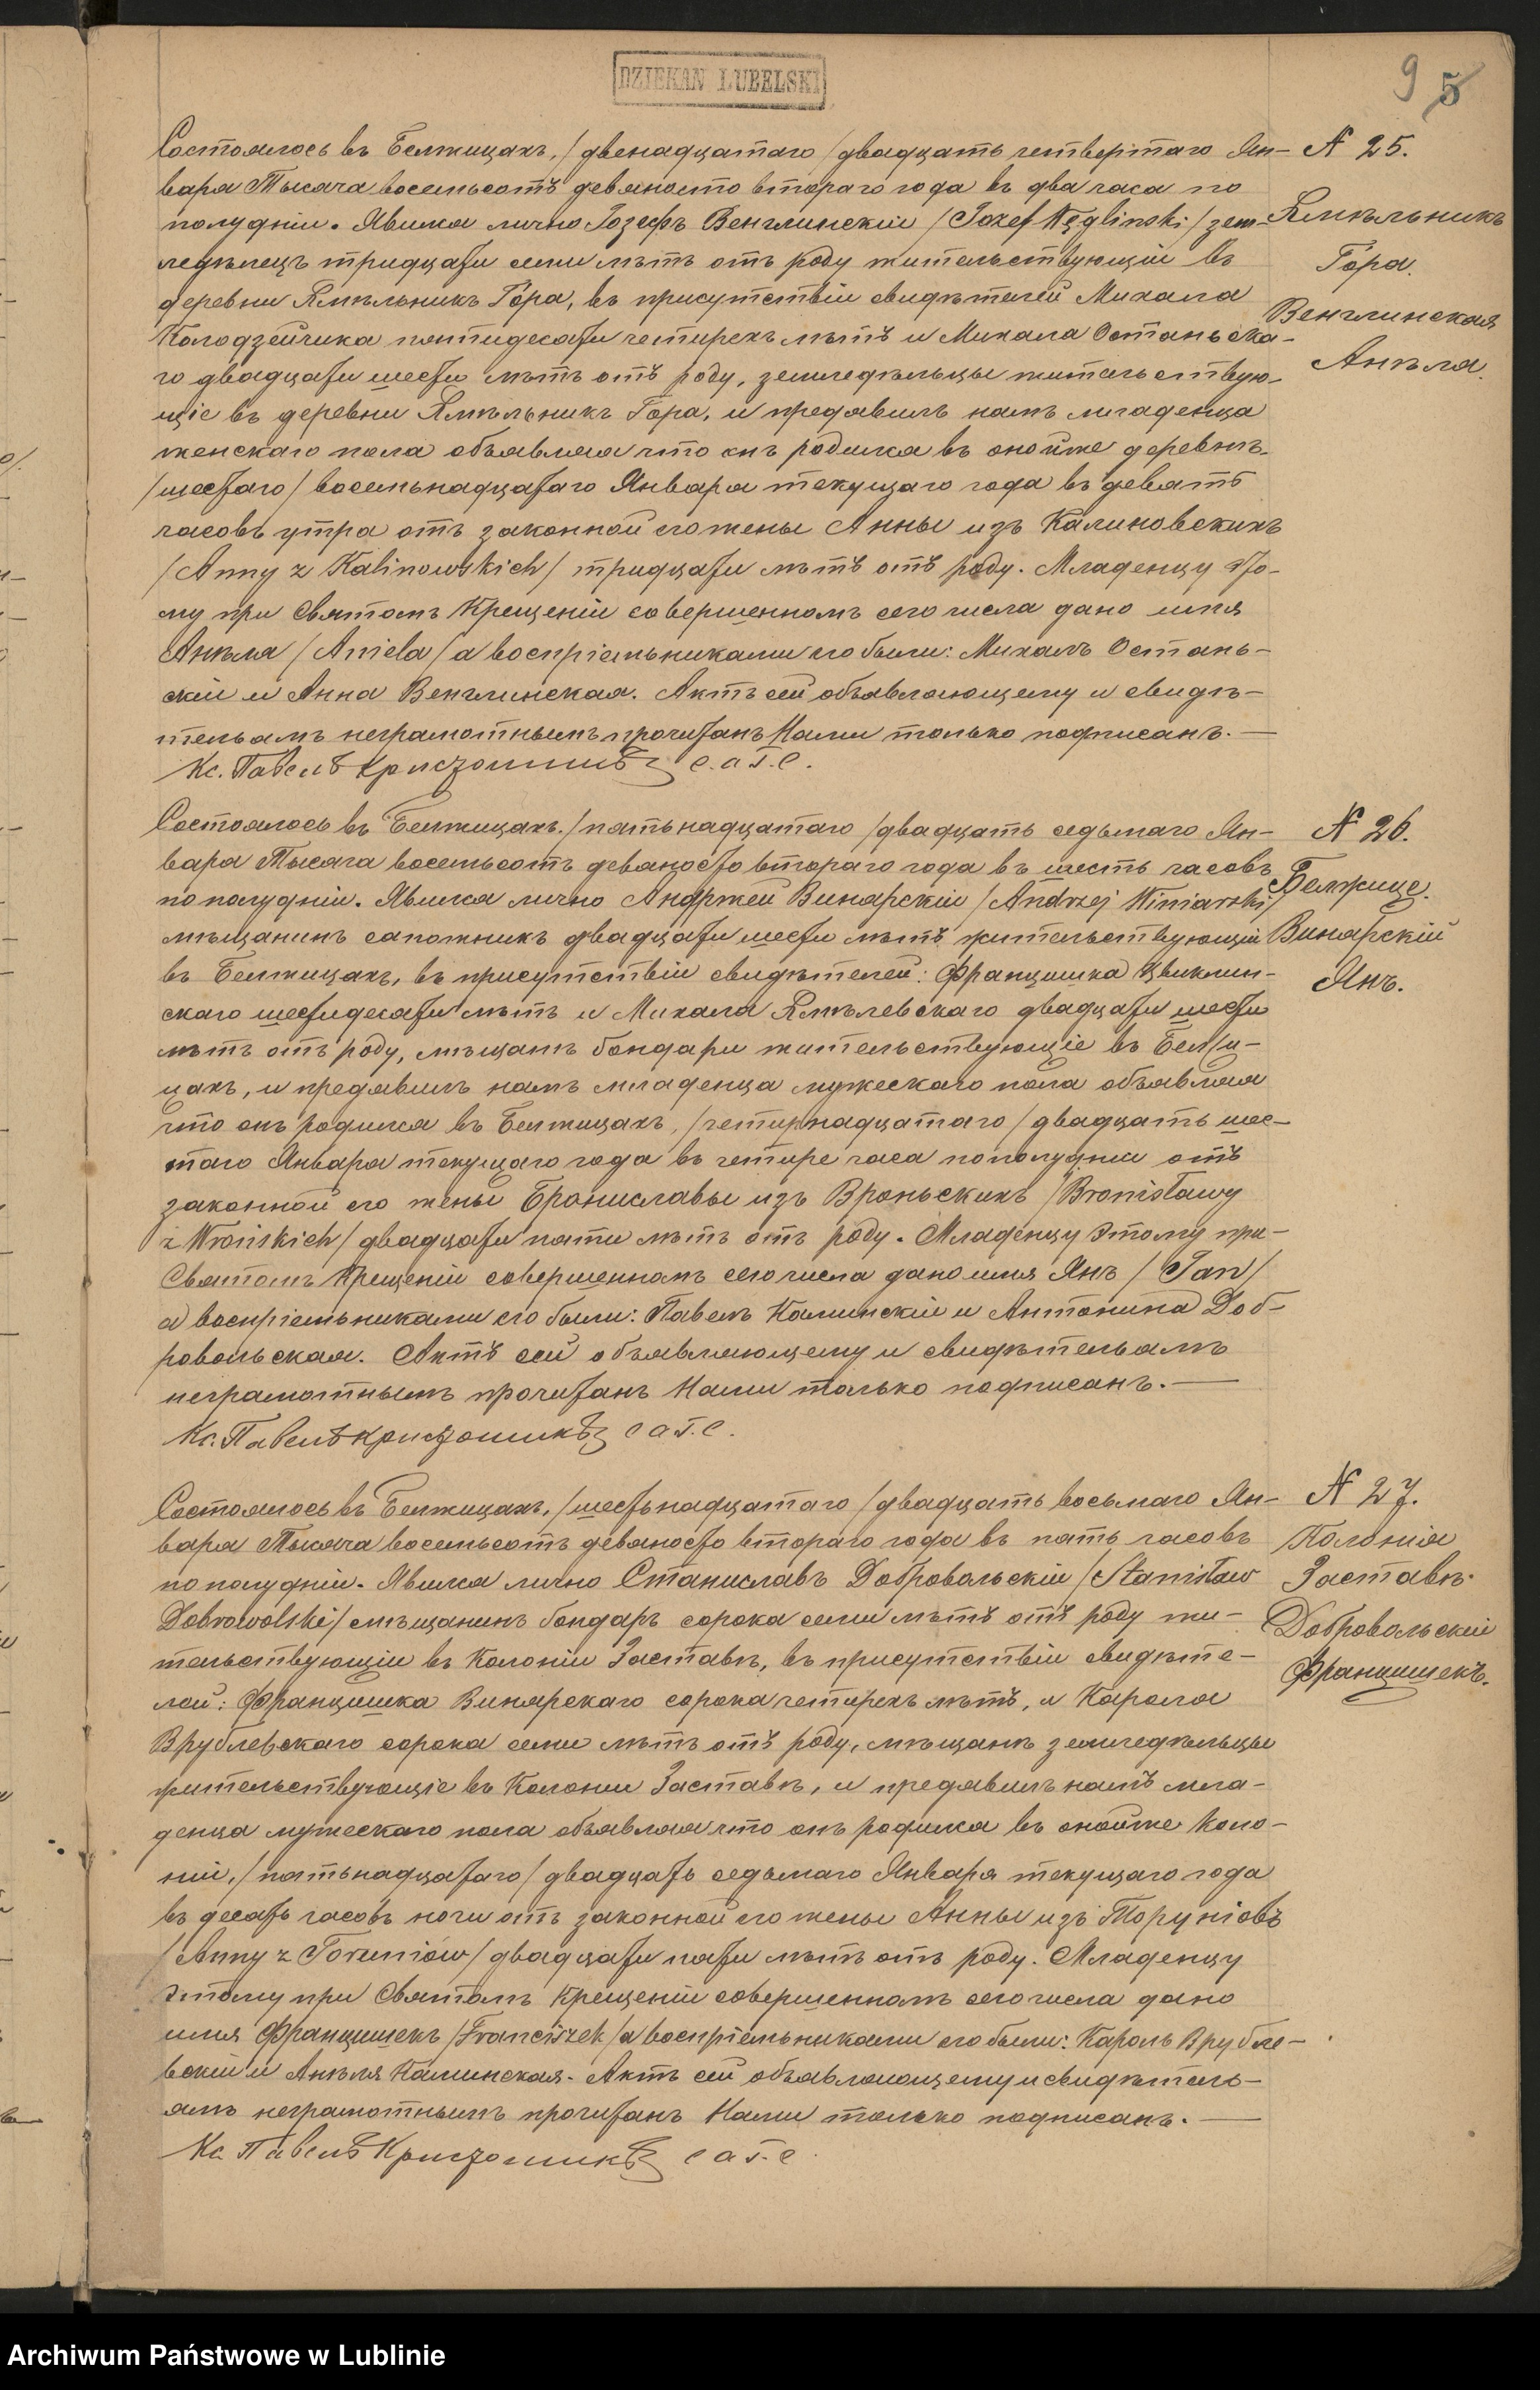 DZIEKAN LUBELSKI
9 5
Состоялось въ Белжицахъ, /двенадцатаго/ двадцать четвертаго Ян-
варя Тысяча восемьсотъ девяносто втораго года въ два часа по
полудніи. Явился лично Іозефъ Венглинскій /Józef Węgliński/ зем-
ледѣлецъ тридцати семи лѣтъ отъ роду жительствующій въ
деревни Ямѣльникъ Гора, въ присутствіи свидѣтелей Михала
Колодзейчика пятидесяти четырехъ лѣтъ и Михала Останьска-
го двадцати шести лѣтъ отъ роду, земледѣльцы жительствую-
щіе въ деревни Ямѣльникъ Гора, и предявилъ намъ младенца
женскаго пола объявляя что онъ родился въ онойже деревнѣ
/шестаго/ восемьнадцатаго Января текущаго года въ девять
часовъ утра отъ законной его жены Анны изъ Калиновскихъ
/Anny z Kalinowskich/ тридцати лѣтъ отъ роду. Младенцу это-
му при Святомъ Крещеніи совершенномъ сего числа дано имя
Анѣля /Aniela/ а воспріемьниками его были: Михалъ Остань-
скій и Анна Венглинская. Актъ сей объявляющему и свидѣ-
тельамъ неграмотнымъ прочитанъ Нами только подписанъ. —
Кс. Павелъ с. а. г. с.
№ 25.
Ямѣльникъ
Гора.
Венглинская
Анѣля.
Состоялось въ Белжицахъ, /пятьнадцатаго/ двадцать седьмаго Ян-
варя Тысяча восемьсотъ девяносто втораго года въ шесть часовъ
по полудніи. Явился лично Андржей Винярскій /Andrzej Winiarski/
мѣщанинъ сапожникъ двадцати шести лѣтъ жительствующій
въ Белжицахъ, въ присутствіи свидѣтелей: Францишка Цвиклин-
скаго шестидесяти лѣтъ и Михала Ямѣлевскаго двадцати шести
лѣтъ отъ роду, мѣщанъ бондари жительствующіе въ Белжи-
цахъ, и предявилъ намъ младенца мужескаго пола объявляя
что онъ родился въ Белжицахъ, /четырнадцатаго/ двадцать шес-
таго Января текущаго года въ четыре часа пополудни отъ
законной его жены Брониславы изъ Вроньскихъ /Bronisławy
z Wrońskich/ двадцати пяти лѣтъ отъ роду. Младенцу этому при
Святомъ Крещеніи совершенномъ сего числа дано имя Янъ /Jan/
а воспріемьниками его были: Павелъ Каминскій и Антонина Доб-
ровольская. Актъ сей объявляющему и свидѣтельамъ
неграмотнымъ прочитанъ Нами только подписанъ. —
Кс. Павелъ с а г. с.
№ 26.
Белжице.
Винярскій
Янъ.
Состоялось въ Белжицахъ, /шестьнадцатаго/ двадцать восьмаго Ян-
варя Тысяча восемьсотъ девяносто втораго года въ пять часовъ
по полудніи. Явился лично Станиславъ Добровольскій /Stanisław
Dobrowolski/ мѣщанинъ бондарь сорока семи лѣтъ отъ роду жи-
тельствующій въ Колоніи Заставѣ, въ присутствіи свидѣте-
лей: Францишка Винярскаго сорока четырехъ лѣтъ, и Кароля
Врублевскаго сорока семи лѣтъ отъ роду, мѣщанъ земледѣльцы
жительствующіе въ Колоніи Заставѣ, и предявилъ намъ мла-
денца мужескаго пола объявляя что онъ родился въ онойже Коло-
ніи, /пятьнадцатаго/ двадцать седьмаго Января текущаго года
въ десять часовъ ночи отъ законной его жены Анны изъ Торуніовъ
/Anny z Toruniów/ двадцати пяти лѣтъ отъ роду. Младенцу
этому при Святомъ Крещеніи совершенномъ сего числа дано
имя Францишекъ /Franciszek/ а воспріемьниками его были: Кароль Врубле-
вскій и Анѣля Каминская. Актъ сей объявляющему и свидѣтель-
амъ неграмотнымъ прочитанъ Нами только подписанъ. —
Кс. Павелъ с а г. с
№ 27.
Колонія
Заставѣ.
Добровольскій
Францишекъ.
Archiwum Państwowe w Lublinie